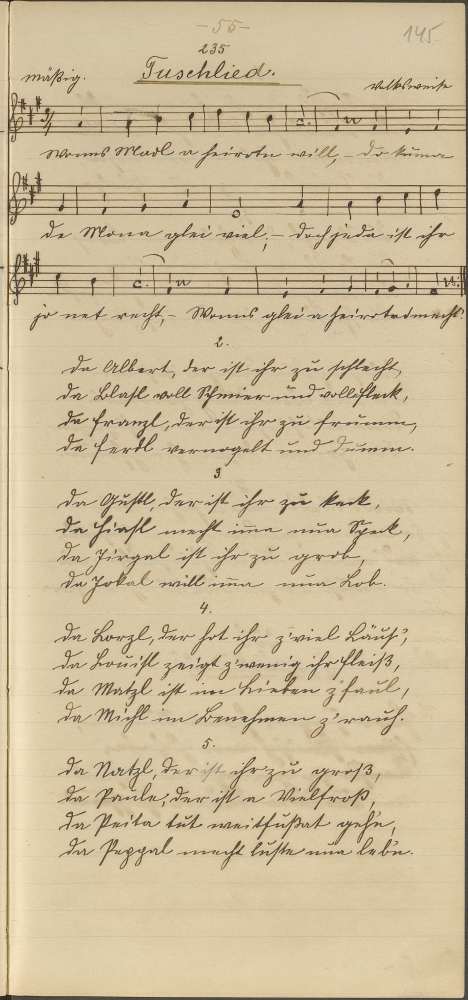 - 55 -
145
235
Tuschlied.
mäßig.
Volksweise
Wonns Madl a heirotn will, - Do kuma
de Mona glei viel; - doch jeda ist ihr
jo net recht, - Wonns glei a heirotn mecht.
2.
Da Albert, der ist ihr zu schlecht,
da Blasl voll Schmier und voll Fleck,
da Franzl, der ist ihr zu frumm,
da Ferdl vernogelt und dumm.
3
Da Gustl, der ist ihr zu keck,
da Hiasl mecht imma nua Speck,
da Jirgal ist ihr zu grob,
da Jokal will imma nua Lob.
4.
Da Lorzl, der hot ihr z'viel Läus',
da Louisl zeigt z'wenig ihr Fleiß,
da Matzl ist im Lieben z'faul,
da Michl im Benehmen z'rauh.
5.
Da Natzl, der ist ihr zu groß,
da Paule, der ist a Vielfroß,
da Peita tut weitfußat geh'n,
da Peppal mecht luste nua leb'n.